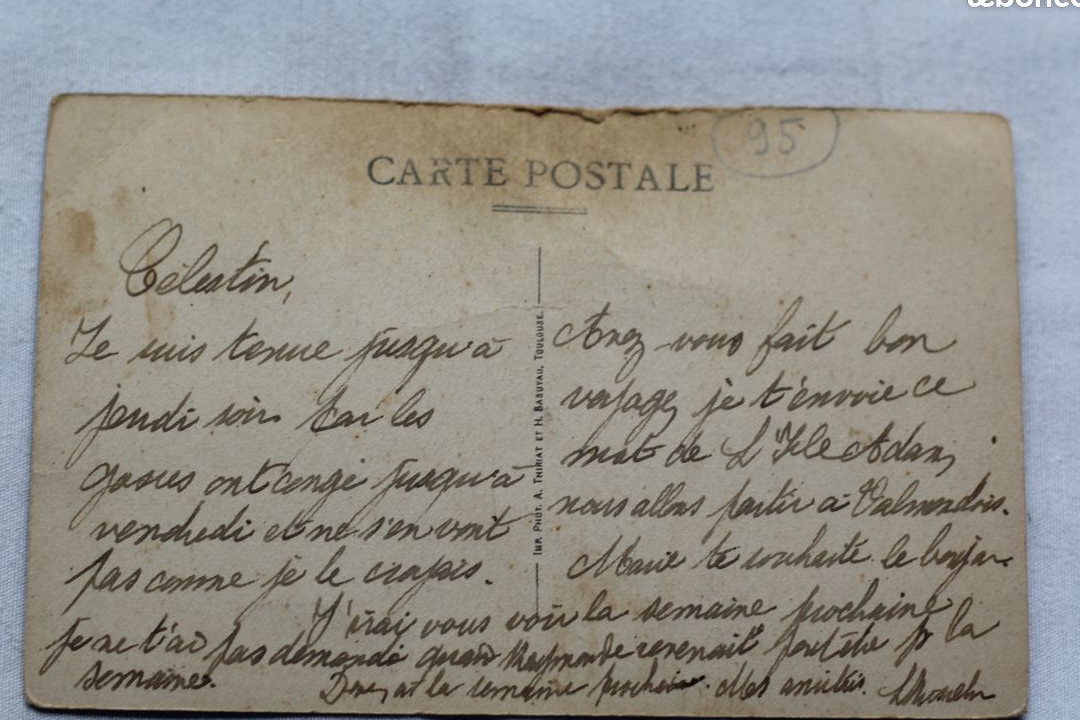 95
CARTE POSTALE
Célestin,
Je suis tenue jusqu'à
jeudi soir car les
gosses ont congé jusqu'à
vendredi et ne s'en vont
pas comme je le croyais.
IMP. PHOT. A. THIRIAT ET H. BASUYAU, TOULOUSE.
Avez vous fait bon
voyage, je t'envoie ce
mot de L'Isle Adam,
nous allons partir à Valmondois.
Marie te souhaite le bonjour
J'irai vous voir la semaine prochaine
je ne t'ai pas demandé quand Raymonde revenait peut être la
semaine.
et la semaine prochaine. Mes amitiés.